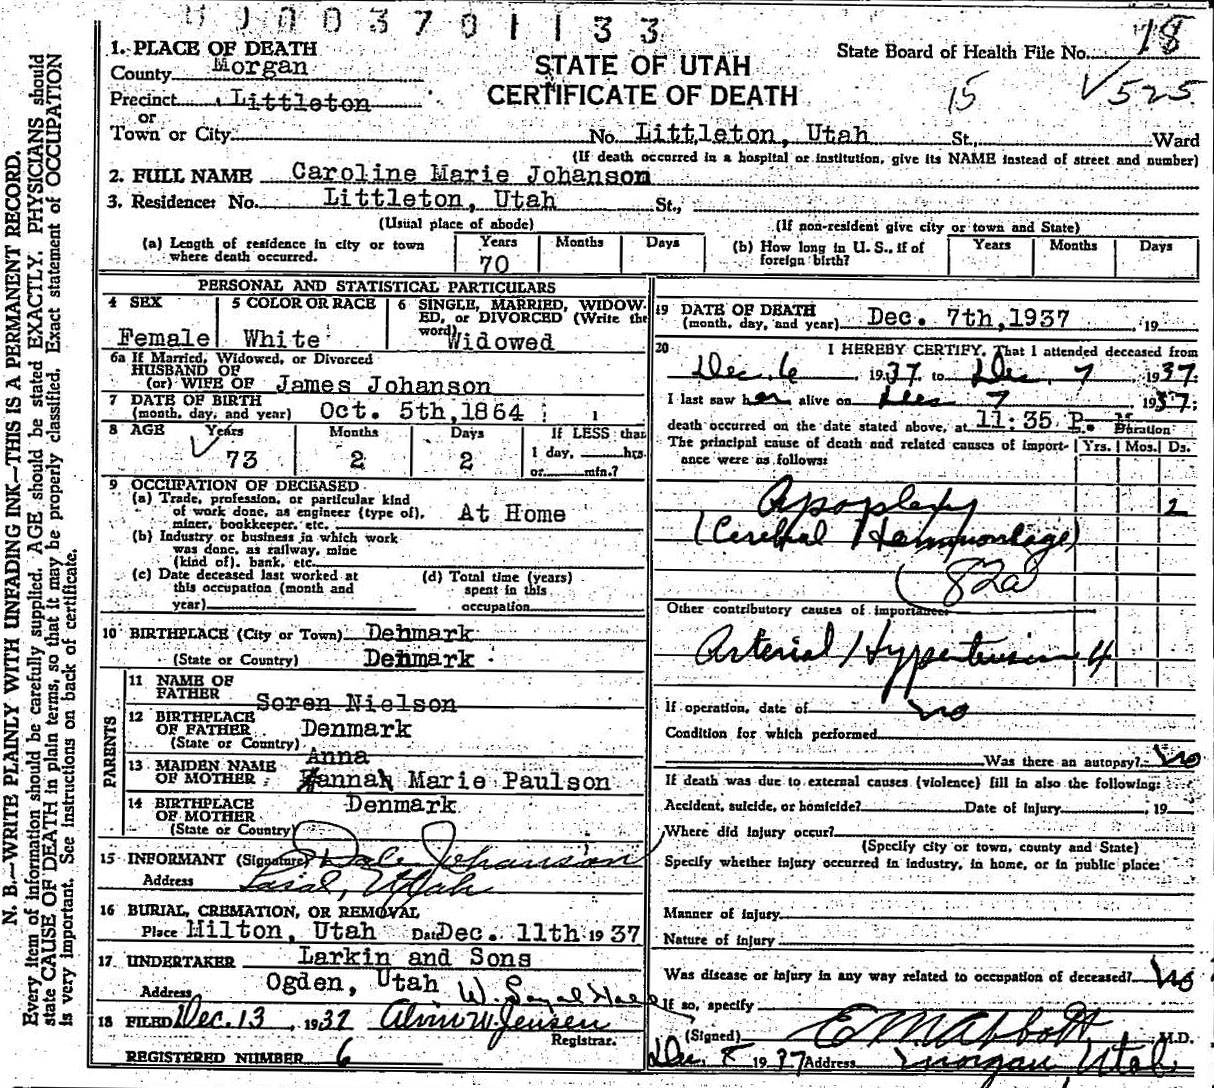 0 0 0 3 7 0 1 1 3 3
1. PLACE OF DEATH
County Morgan
Precinct Littleton
or
Town or City
STATE OF UTAH
CERTIFICATE OF DEATH
State Board of Health File No. 18
15 √525
No. Littleton, Utah St., Ward
(If death occurred in a hospital or institution, give its NAME instead of street and number)
2. FULL NAME Caroline Marie Johanson
3. Residence: No. Littleton, Utah St.,
(Usual place of abode) (If non-resident give city or town and State)
(a) Length of residence in city or town where death occurred. Years 70 Months Days
(b) How long in U. S., if of foreign birth? Years Months Days
PERSONAL AND STATISTICAL PARTICULARS
4 SEX Female
5 COLOR OR RACE White
6 SINGLE, MARRIED, WIDOWED, or DIVORCED (Write the word) Widowed
6a If Married, Widowed, or Divorced
HUSBAND OF
(or) WIFE OF James Johanson
7 DATE OF BIRTH
(month, day, and year) Oct. 5th, 1864
8 AGE Years √ 73 Months 2 Days 2
If LESS than
1 day, hrs.
or min.?
9 OCCUPATION OF DECEASED
(a) Trade, profession, or particular kind
of work done, as engineer (type of),
miner, bookkeeper, etc. At Home
(b) Industry or business in which work
was done, as railway, mine
(kind of), bank, etc.
(c) Date deceased last worked at
this occupation (month and
year)
(d) Total time (years)
spent in this
occupation
10 BIRTHPLACE (City or Town) Denmark
(State or Country) Denmark
PARENTS
11 NAME OF
FATHER Soren Nielson
12 BIRTHPLACE
OF FATHER Denmark
(State or Country)
Anna
13 MAIDEN NAME
OF MOTHER Hannah Marie Paulson
14 BIRTHPLACE
OF MOTHER Denmark
(State or Country)
15 INFORMANT (Signature) Dale Johanson
Address Lasal, Utah
16 BURIAL, CREMATION, OR REMOVAL
Place Milton, Utah Date Dec. 11th 1937
17 UNDERTAKER Larkin and Sons
Address Ogden, Utah W.
18 FILED Dec. 13, 1937 Alvin W. Jensen
Registrar.
REGISTERED NUMBER 6
19 DATE OF DEATH
(month, day, and year) Dec. 7th, 1937 , 19
20 I HEREBY CERTIFY, That I attended deceased from
Dec. 6, 1937 to Dec. 7 1937:
I last saw her alive on Dec 7 1937:
death occurred on the date stated above, at 11:35 P. M.
Duration
The principal cause of death and related causes of importance were as follows: Yrs. Mos. Ds.
Apoplexy 2
(Cerebral Hemmorhage)
(82a
Other contributory causes of importance:
Arterial Hypertension 4
If operation, date of no
Condition for which performed
Was there an autopsy? no
If death was due to external causes (violence) fill in also the following:
Accident, suicide, or homicide? Date of injury , 19
Where did injury occur?
(Specify city or town, county and State)
Specify whether injury occurred in industry, in home, or in public place:
Manner of injury
Nature of injury
Was disease or injury in any way related to occupation of deceased? no
If so, specify
(Signed) E M Abbott M.D.
Dec. 8 1937 Address Morgan Utah
N. B.—WRITE PLAINLY WITH UNFADING INK—THIS IS A PERMANENT RECORD.
Every item of information should be carefully supplied. AGE should be stated EXACTLY. PHYSICIANS should
state CAUSE OF DEATH in plain terms, so that it may be properly classified. Exact statement of OCCUPATION
is very important. See instructions on back of certificate.